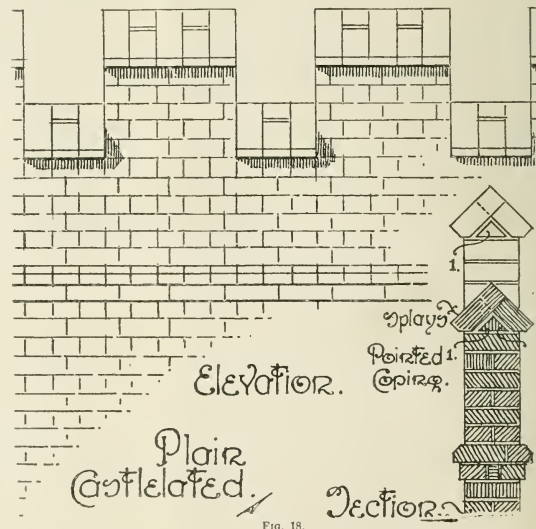 1.
splays
Pointed 1.
Coping.
Elevation.
Plain
Castlelated.
Section.
Fig. 18.